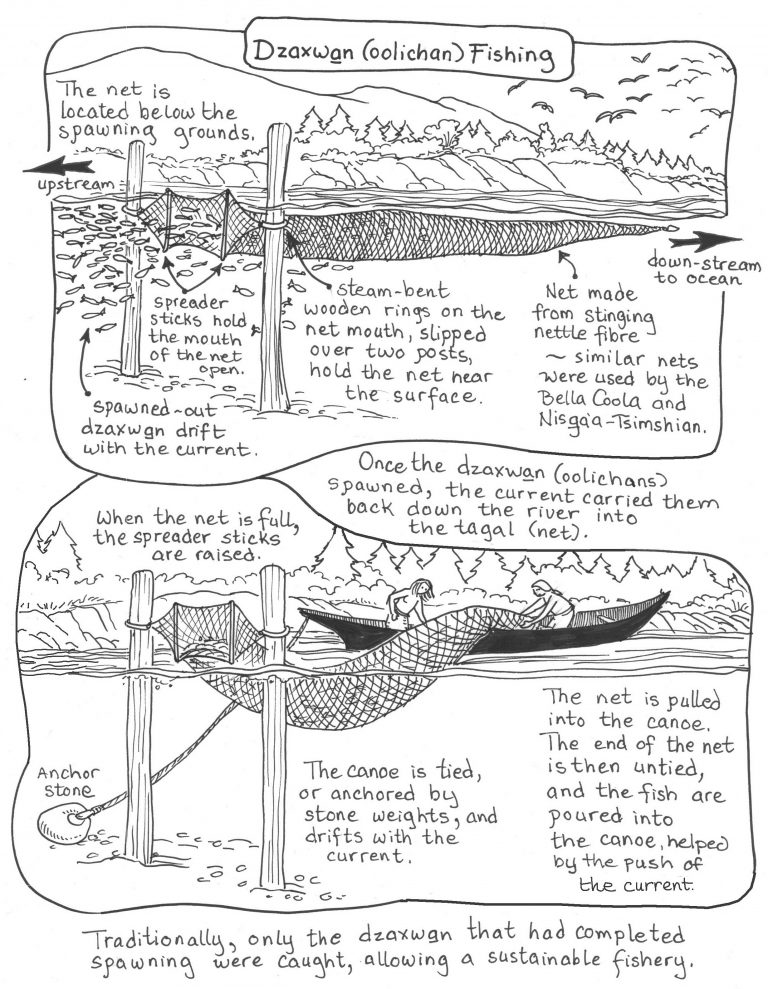 Dzaxwa̱n (oolichan) Fishing
The net is
located below the
spawning grounds.
upstream
down-stream
to ocean
spreader
sticks hold
the mouth
of the net
open.
steam-bent
wooden rings on the
net mouth, slipped
over two posts,
hold the net near
the surface.
Net made
from stinging
nettle fibre
~ similar nets
were used by the
Bella Coola and
Nisga'a-Tsimshian.
spawned-out
dzaxwa̱n drift
with the current.
Once the dzaxwa̱n (oolichans)
spawned, the current carried them
back down the river into
the tagal (net).
When the net is full,
the spreader sticks
are raised.
Anchor
stone
The canoe is tied,
or anchored by
stone weights, and
drifts with the
current.
The net is pulled
into the canoe.
The end of the net
is then untied,
and the fish are
poured into
the canoe, helped
by the push of
the current.
Traditionally, only the dzaxwa̱n that had completed
spawning were caught, allowing a sustainable fishery.